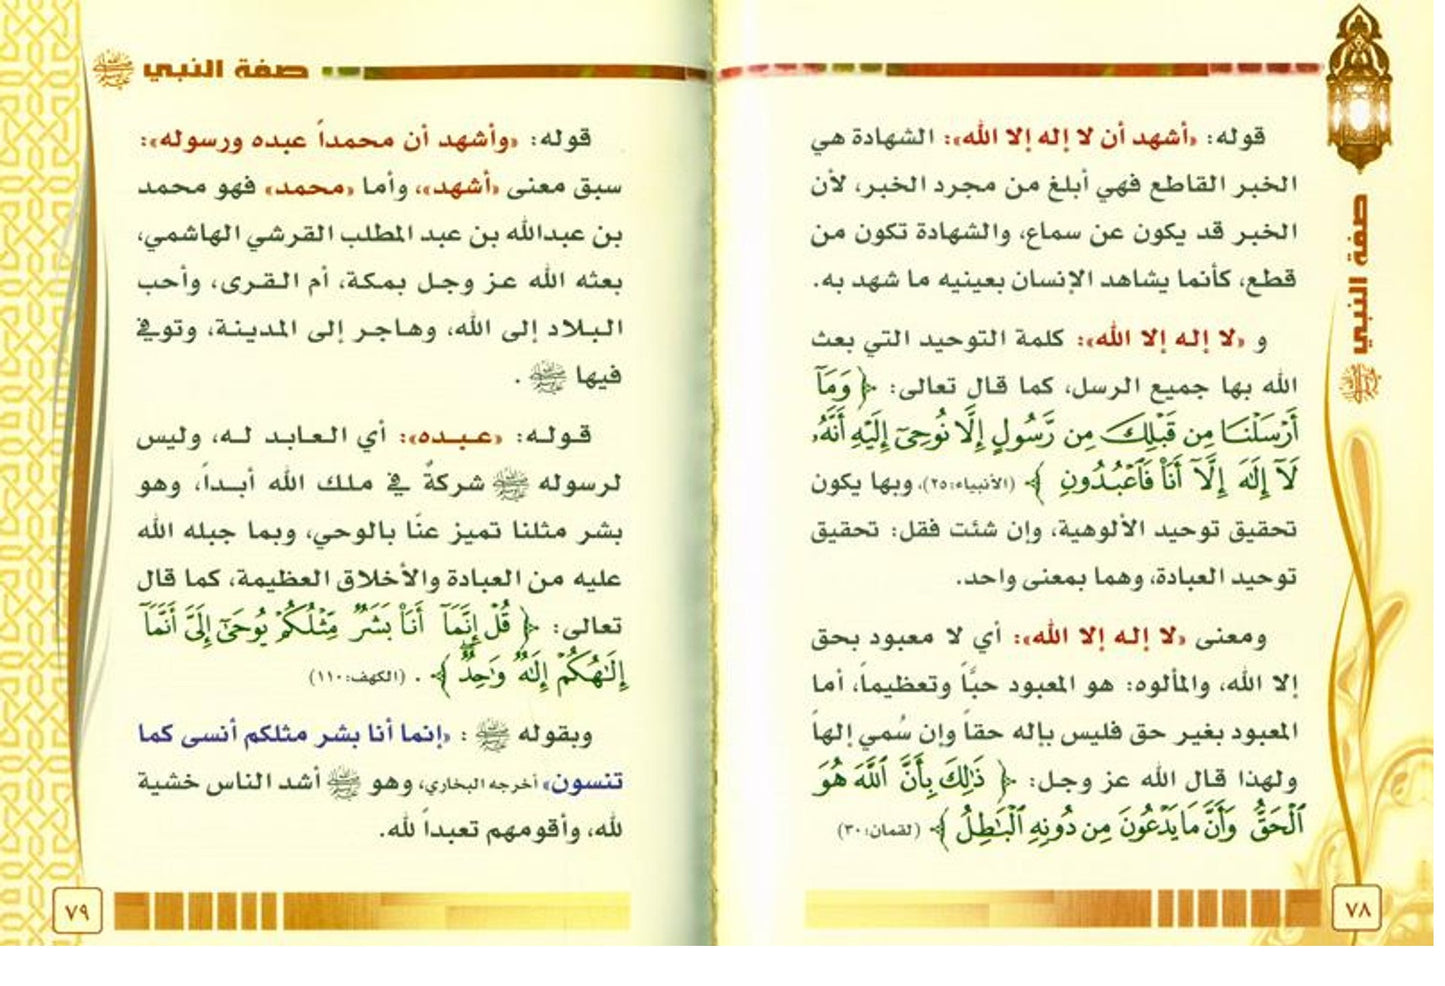 صفة النبي ﷺ
قوله: «أشهد أن لا إله إلا الله»: الشهادة هي
الخبر القاطع فهي أبلغ من مجرد الخبر، لأن
الخبر قد يكون عن سماع، والشهادة تكون من
قطع، كأنما يشاهد الإنسان بعينيه ما شهد به.
و «لا إله إلا الله»: كلمة التوحيد التي بعث
الله بها جميع الرسل، كما قال تعالى: ﴿ وَمَآ
أَرْسَلْنَا مِن قَبْلِكَ مِن رَّسُولٍ إِلَّا نُوحِىٓ إِلَيْهِ أَنَّهُۥ
لَآ إِلَٰهَ إِلَّآ أَنَا۠ فَٱعْبُدُونِ ﴾ (الأنبياء:٢٥)، وبها يكون
تحقيق توحيد الألوهية، وإن شئت فقل: تحقيق
توحيد العبادة، وهما بمعنى واحد.
ومعنى «لا إله إلا الله»: أي لا معبود بحق
إلا الله، والمألوه: هو المعبود حبًّا وتعظيماً، أما
المعبود بغير حق فليس بإله حقاً وإن سُمي إلهاً
ولهذا قال الله عز وجل: ﴿ ذَٰلِكَ بِأَنَّ ٱللَّهَ هُوَ
ٱلْحَقُّ وَأَنَّ مَا يَدْعُونَ مِن دُونِهِ ٱلْبَٰطِلُ ﴾ (لقمان:٣٠)
٧٨
صفة النبي ﷺ
قوله: «وأشهد أن محمداً عبده ورسوله»:
سبق معنى «أشهد»، وأما «محمد» فهو محمد
بن عبدالله بن عبد المطلب القرشي الهاشمي،
بعثه الله عز وجل بمكة، أم القرى، وأحب
البلاد إلى الله، وهاجر إلى المدينة، وتوفي
فيها ﷺ .
قوله: «عبده»: أي العابد له، وليس
لرسوله ﷺ شركةٌ في ملك الله أبداً، وهو
بشر مثلنا تميز عنّا بالوحي، وبما جبله الله
عليه من العبادة والأخلاق العظيمة، كما قال
تعالى: ﴿ قُلْ إِنَّمَآ أَنَا۠ بَشَرٌ مِّثْلُكُمْ يُوحَىٰٓ إِلَىَّ أَنَّمَآ
إِلَٰهُكُمْ إِلَٰهٌ وَٰحِدٌ ﴾ . (الكهف:١١٠)
وبقوله ﷺ : «إنما أنا بشر مثلكم أنسى كما
تنسون» أخرجه البخاري، وهو ﷺ أشد الناس خشية
لله، وأقومهم تعبداً لله.
٧٩